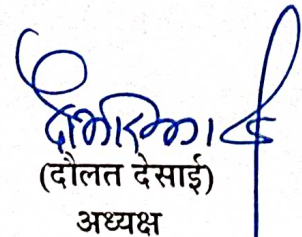 (दौलत देसाई)
अध्यक्ष